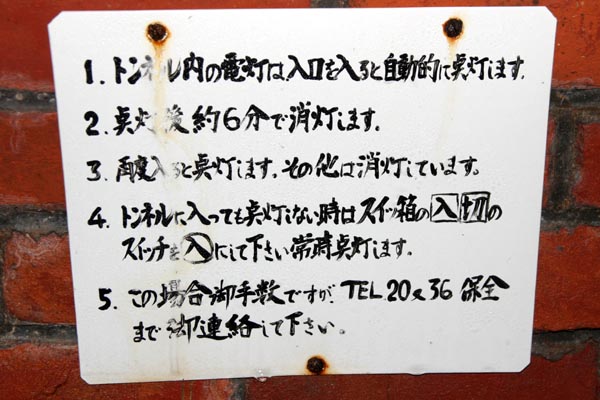 1. トンネル内の電灯は入口を入ると自動的に点灯します。
2. 点灯後約6分で消灯します。
3. 再度入ると点灯します。その他は消灯しています。
4. トンネルに入っても点灯しない時はスイッチ箱の入切の
スイッチを入にして下さい常時点灯します。
5. この場合御手数ですが、TEL 20又36 保全
まで御連絡して下さい。